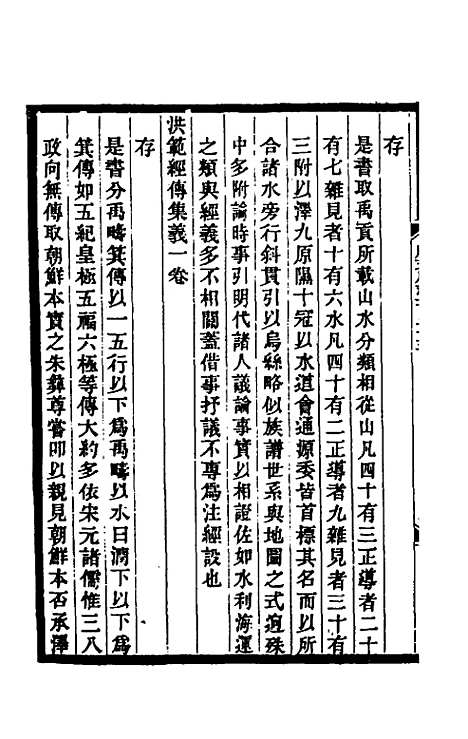 存
是書取禹貢所載山水分類相從山凡四十有三正導者二十
有七雜見者十有六水凡四十有二正導者九雜見者三十有
三附以澤九原隰十冠以水道會通源委皆首標其名而以所
合諸水旁行斜貫引以烏絲略似族譜世系與地圖之式逈殊
中多附論時事引明代諸人議論事實以相證佐如水利海運
之類與經義多不相關蓋借事抒議不專爲注經設也
洪範經傳集義一卷
存
是書分禹疇箕傳以一五行以下爲禹疇以水曰潤下以下爲
箕傳如五紀皇極五福六極等傳大約多依宋元諸儒惟三八
政向無傳取朝鮮本實之朱彝尊嘗叩以親見朝鮮本否承澤